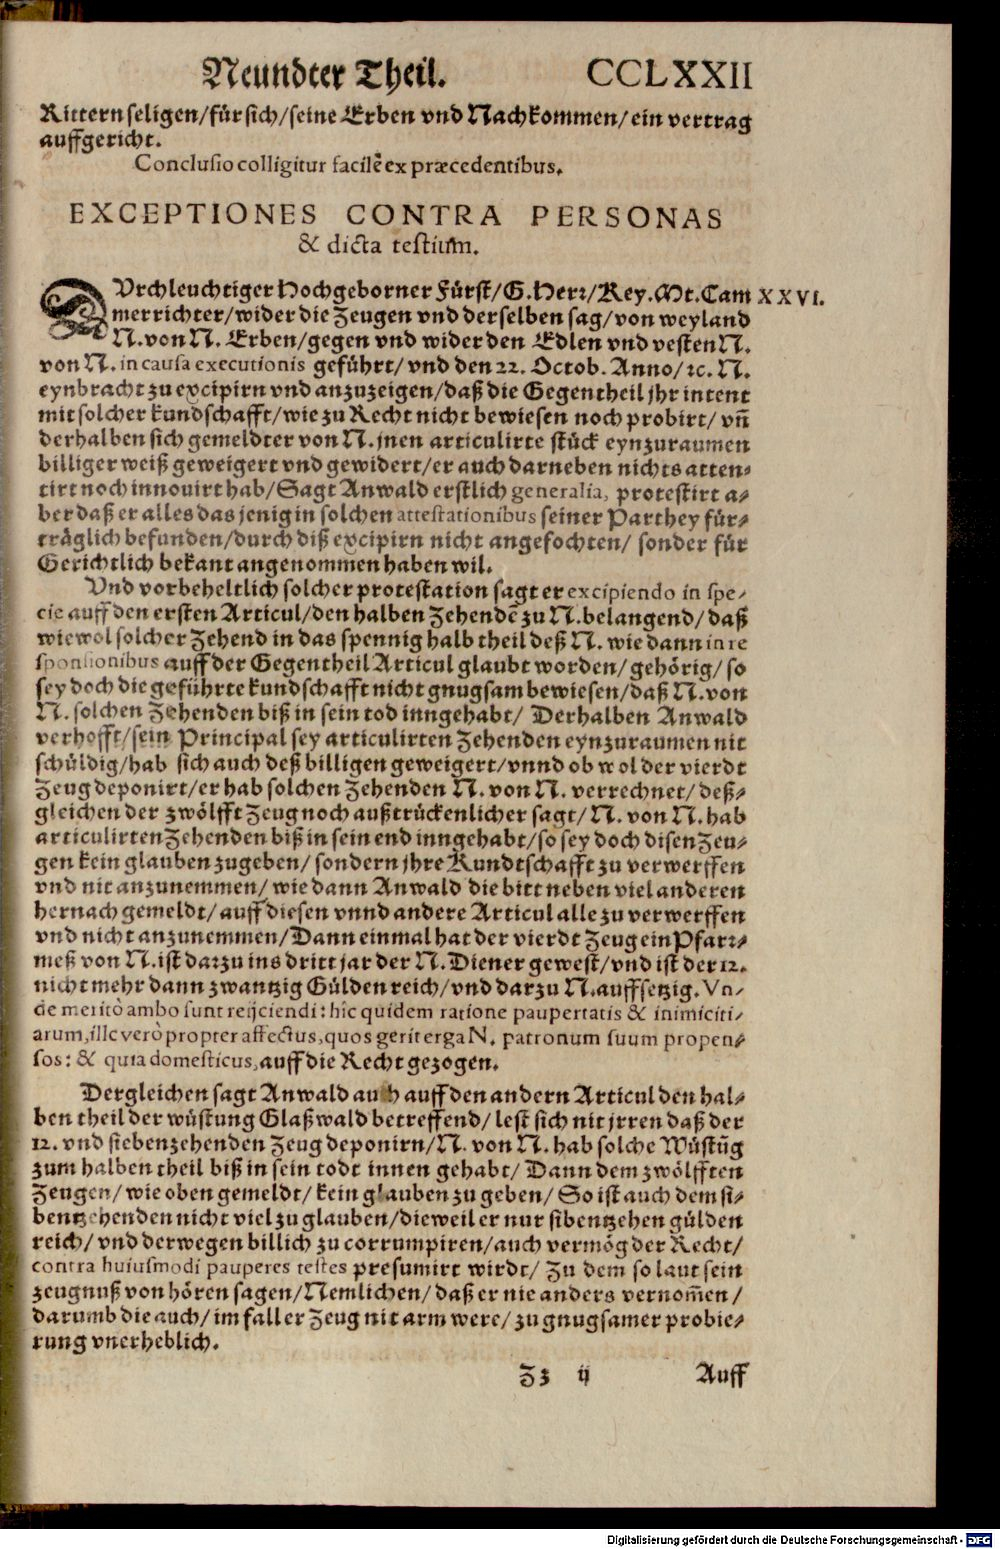 Neundter Theil. CCLXXII
Rittern seligen/für sich/seine Erben vnd Nachkommen/ein vertrag
auffgericht.
Conclusio colligitur facilè ex præcedentibus.
EXCEPTIONES CONTRA PERSONAS
& dicta testium.
DVrchleuchtiger Hochgeborner Fürst/G. Herr/Key. Mt. Cam XXVI.
merrichter/wider die Zeugen vnd derselben sag/von weyland
N. von N. Erben/gegen vnd wider den Edlen vnd vesten N.
von N. in causa executionis geführt/vnd den 22. Octob. Anno/ꝛc. N.
eynbracht zu excipirn vnd anzuzeigen/daß die Gegentheil jhr intent
mit solcher kundschafft/wie zu Recht nicht bewiesen noch probirt/vn̄
derhalben sich gemeldter von N. jnen articulirte stück eynzuraumen
billiger weiß geweigert vnd gewidert/er auch darneben nichts atten⸗
tirt noch innouirt hab/Sagt Anwald erstlich generalia, protestirt a⸗
ber daß er alles das jenig in solchen attestationibus seiner Parthey für⸗
träglich befunden/durch diß excipirn nicht angefochten/sonder für
Gerichtlich bekant angenommen haben wil.
Vnd vorbeheltlich solcher protestation sagt er excipiendo in spe⸗
cie auff den ersten Articul/den halben Zehendē zu N. belangend/daß
wiewol solcher Zehend in das spennig halb theil deß N. wie dann in re
sponsionibus auff der Gegentheil Articul glaubt worden/gehörig/so
sey doch die geführte kundschafft nicht gnugsam bewiesen/daß N. von
N. solchen Zehenden biß in sein tod inngehabt/Derhalben Anwald
verhofft/sein Principal sey articulirten Zehenden eynzuraumen nit
schüldig/hab sich auch deß billigen geweigert/vnnd ob wol der vierdt
Zeug deponirt/er hab solchen Zehenden N. von N. verrechnet/deß⸗
gleichen der zwölfft Zeug noch außtrückenlicher sagt/N. von N. hab
articulirten Zehenden biß in sein end inngehabt/so sey doch disen Zeu⸗
gen kein glauben zugeben/sondern jhre Kundtschafft zu verwerffen
vnd nit anzunemmen/wie dann Anwald die bitt neben viel anderen
hernach gemeldt/auff diesen vnnd andere Articul alle zu verwerffen
vnd nicht anzunemmen/Dann einmal hat der vierdt Zeug ein Pfarr⸗
meß von N. ist darzu ins dritt jar der N. Diener gewest/vnd ist der 12.
nicht mehr dann zwantzig Gülden reich/vnd darzu N. auffsetzig. Vn⸗
de meritò ambo sunt reijciendi: hic quidem ratione paupertatis & inimiciti⸗
arum, ille verò propter affectus, quos gerit erga N. patronum suum propen⸗
sos: & quia domesticus, auff die Recht gezogen.
Dergleichen sagt Anwald auch auff den andern Articul den hal⸗
ben theil der wüstung Glaßwald betreffend/lest sich nit jrren daß der
12. vnd siebenzehenden Zeug deponirn/N. von N. hab solche Wüstūg
zum halben theil biß in sein todt innen gehabt/Dann dem zwölfften
Zeugen/wie oben gemeldt/kein glauben zu geben/So ist auch dem si⸗
bentzehenden nicht viel zu glauben/dieweil er nur sibentzehen gülden
reich/vnd derwegen billich zu corrumpiren/auch vermög der Recht/
contra huiusmodi pauperes testes presumirt wirdt/Zu dem so laut sein
zeugnuß von hören sagen/Nemlichen/daß er nie anders vernom̄en/
darumb die auch/im fall er Zeug nit arm were/zu gnugsamer probie⸗
rung vnerheblich.
Zz ij Auff
Digitalisierung gefördert durch die Deutsche Forschungsgemeinschaft - DFG